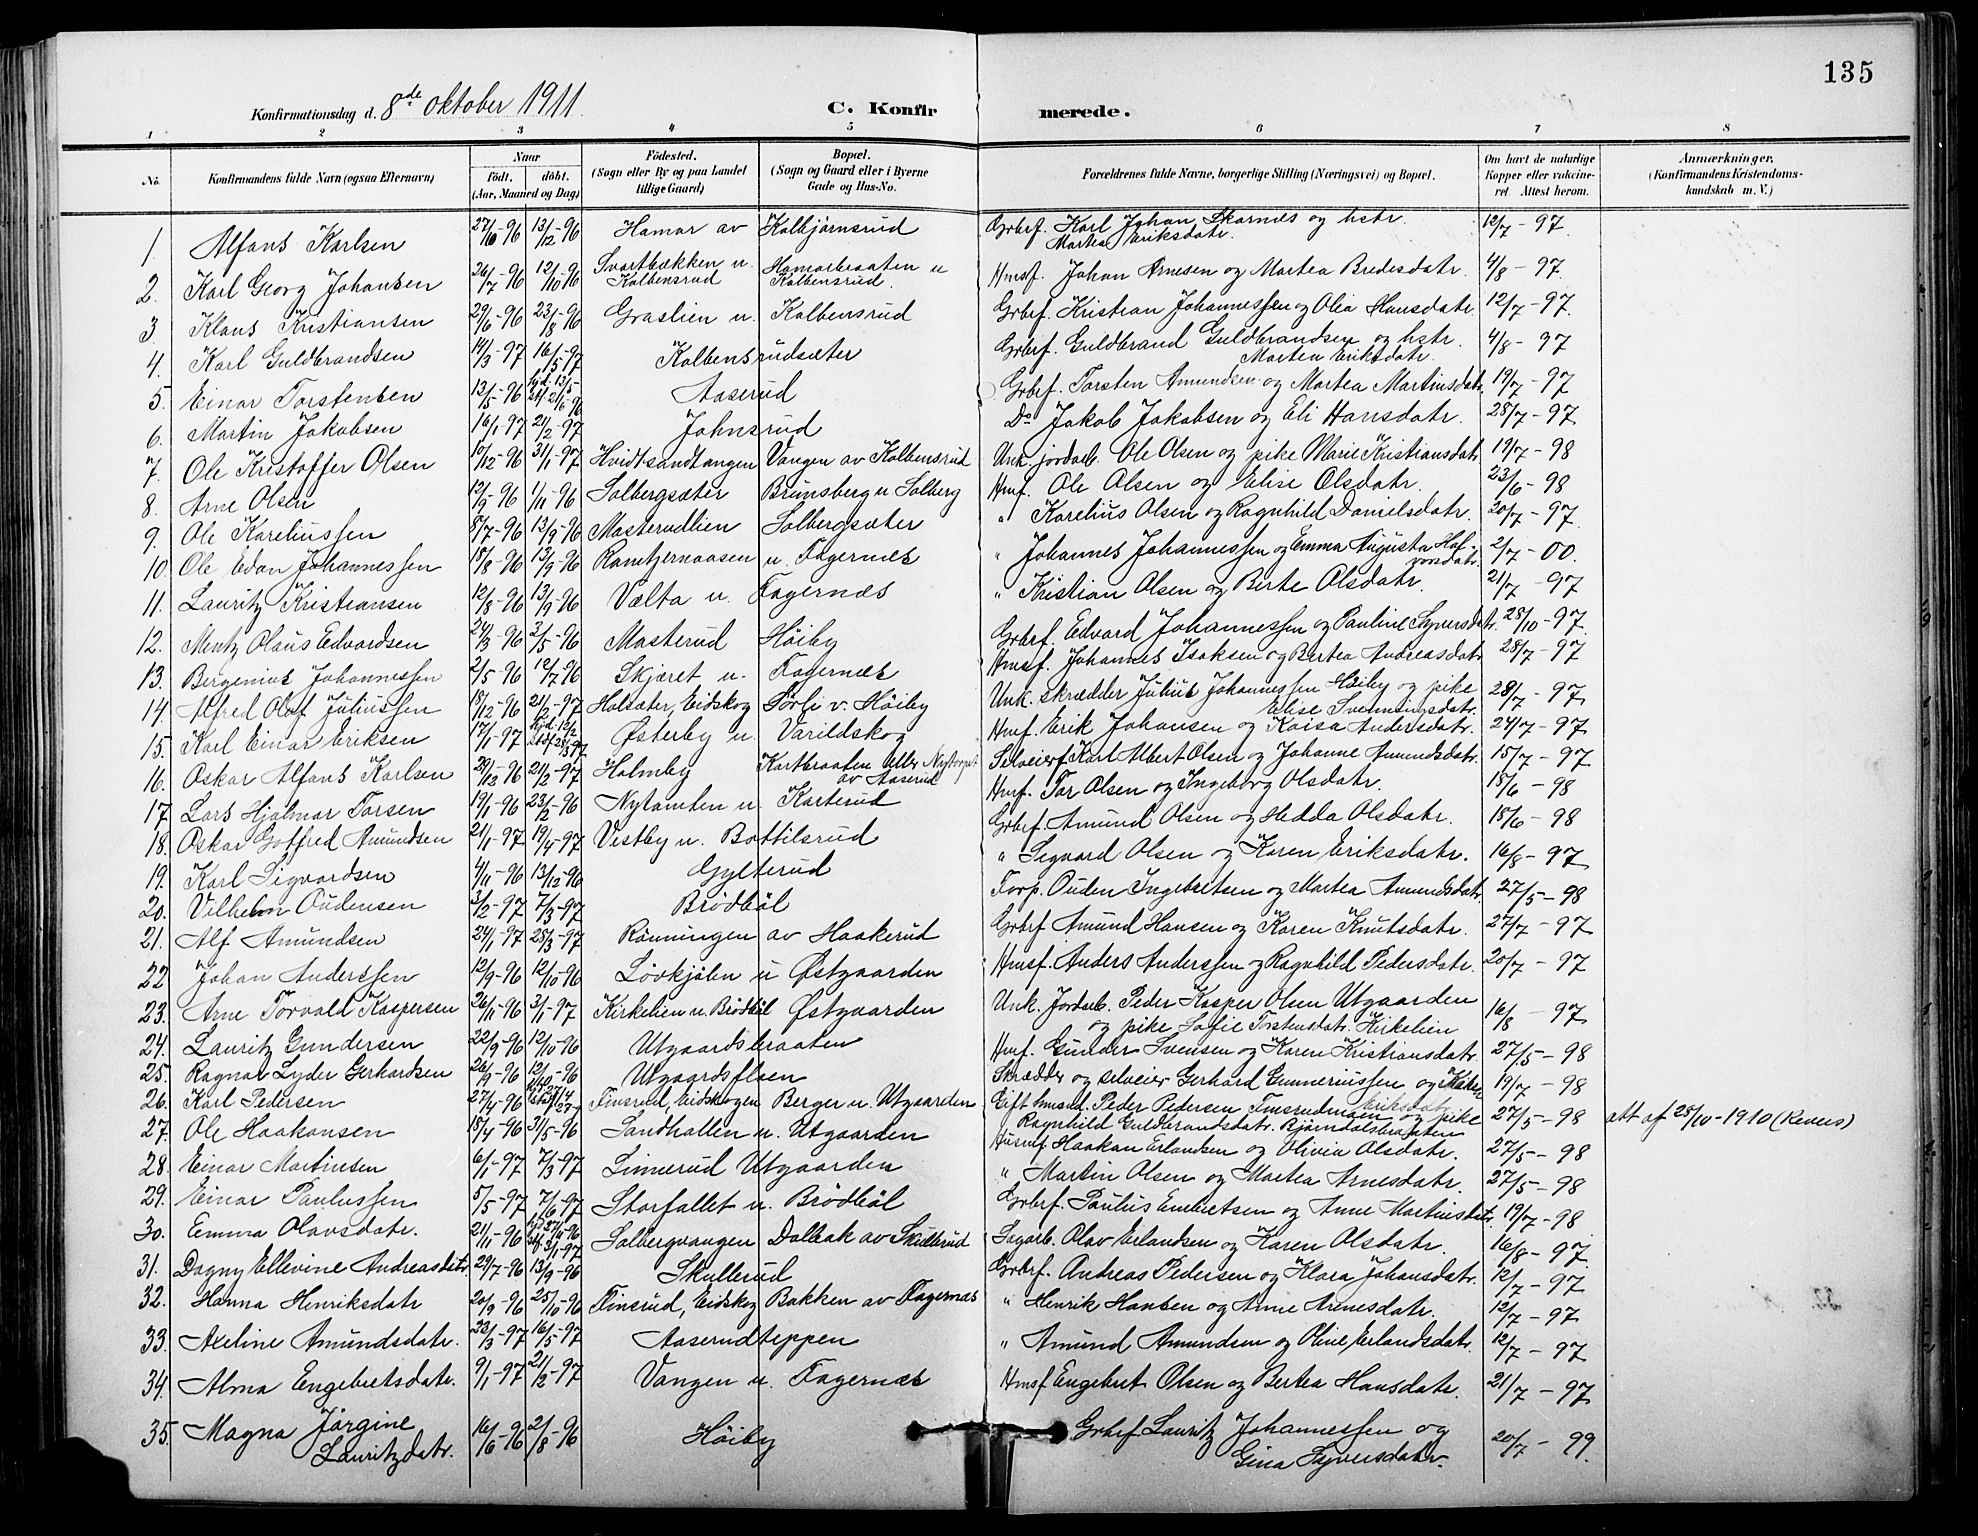 135
Konfirmationsdag d. 8de oktober 1911.
C. Konfirmerede.
1 2 3 4 5 6 7 8
No. Konfirmandens fulde Navn (ogsaa Efternavn) Naar födt. döbt. (Aar, Maaned og Dag) Födested. (Sogn eller By og paa Landet tillige Gaard) Bopæl. (Sogn og Gaard eller i Byerne Gade og Hus-No. Forældrenes fulde Navne, borgerlige Stilling (Næringsvei) og Bopæl. Om havt de naturlige Kopper eller vaccineret. Attest herom. Anmærkninger, (Konfirmandens Kristendomskundskab m. V.)
1. Alfons Karlsen 27/10-96 13/12-96 Hamar av Kolbjørnsrud Grbrf. Karl Johan Skarnes og hstr. Martea Eriksdatr. 12/7-97.
2. Karl Georg Johansen 26/7-96 12/10-96 Svartbækken u. Kolbensrud Hamarbraaten u Kolbensrud. Hmsf. Johan Arnesen og Martea Bredesdatr. 4/8-97.
3. Klaus Kristiansen 29/6-96 23/8-96 Graslien u. Kolbensrud Grbrf. Kristian Johannessen og Olia Hansdatr 12/7-97.
4. Karl Guldbrandsen 14/3-97 16/5-97 Kolbensrudsæter Grbrf. Guldbrand Guldbrandsen og hstr. Martea Eriksdatr. 4/8-97
5. Einar Torstensen 13/5-96 hjd. 13/5 stf 21/6-96 Aaserud Grbrf. Torsten Amundsen og Martea Martinsdatr. 19/7-97
6. Martin Jakobsen 16/1-97 21/2-97 Johnsrud Do Jakob Jakobsen og Eli Hansdatr. 28/7-97
7. Ole Kristoffer Olsen 10/12-96 31/1-97 Hvidtsandtangen Vangen av Kolbensrud Unk. jordarb. Ole Olsen og pike Marie Kristiansdatr 19/7-98
8. Arne Olsen 12/9-96 1/11-96 Solbergsæter Brunsberg u Solberg Hmf. Ole Olsen og Elise Olsdatr. 23/6-98
9. Ole Kareliussen 8/7-96 13/9-96 Masterudlien Solbergsæter " Karelius Olsen og Ragnhild Danielsdatr. 20/7-97.
10. Ole Edon Johannessen 18/8-96 13/9-96 Ramtjernaasen u. Fagernæs " Johannes Johannessen og Emma Augusta Halvorsdatr. 2/7-00.
11. Lauritz Kristiansen 12/8-96 13/9-96 Vælta u. Fagernæs " Kristian Olsen og Berte Olsdatr. 21/7-97
12. Mentz Olaus Edvardsen 24/3-96 3/5-96 Masterud Høiby Grbrf. Edvard Johannessen og Pauline Syversdatr. 28/10-97.
13. Bergenius Johannessen 2/5-96 12/7-96 Skjæret u. Fagernæs Hmsf. Johannes Isaksen og Bertea Andreasdatr 28/7-97
14. Alfred Olaf Juliussen 18/12-96 21/2-97 Holsæter, Eidskog Sørli v. Høiby Unk. skrædder Julius Johannessen Høiby og pike Elise Svenningsdatr. 28/7-97
15. Karl Einar Eriksen 17/1-97 Østerby u. Varildskog Hmf. Erik Johansen og Kaisa Andersdatr. 24/7-97
16. Oskar Alfons Karlsen 29/12-96 21/2-97 Holmby Kartbraaten eller Nytorpet av Aaserud Selveierf. Karl Albert Olsen og Johanne Amundsdatr. 15/7-97
17. Lars Hjalmar Torsen 19/1-96 23/2-96 Nytomten u. Karterud Hmf. Tor Olsen og Ingeborg Olsdatr. 18/6-98
18. Oskar Gotfred Amundsen 21/1-97 19/4-97 Vestby u. Bottilsrud Grbrf. Amund Olsen og Hedda Olsdatr. 18/6-98
19. Karl Sigvardsen 4/11-96 13/12-96 Gylterud " Sigvard Olsen og Karen Eriksdatr. 16/8-97
20. Vilhelm Oudensen 3/2-97 7/3-97 Brødbøl Torp. Ouden Ingebretsen og Martea Amundsdatr. 27/5-98
21. Alf Amundsen 24/1-97 28/3-97 Rønningen av Haakerud Grbrf Amund Hansen og Karen Knutsdatr. 27/7-97
22 Johan Anderssen 12/9-96 12/10-96 Løvkjølen u Østgaarden Hmsf. Anders Anderssen og Ragnhild Pedersdatr. 20/7-97
23. Arne Torvald Kaspersen 26/11-96 3/1-97 Kirkelien u. Brødbøl Østgaarden Unk. Jordarb. Peder Kasper Olsen Utgaarden og pike Sofie Torstensdatr. Kirkelien 16/8-97
24. Lauritz Gundersen 22/9-96 12/10-96 Utgaardsbraaten Hmf. Gunder Svensen og Karen Kristiansdatr. 27/5-98
25. Ragnar Lyder Gerhardsen 26/9-96 Utgaardsfloen Skrædder og selveier Gerhard Gunneriussen og Karen Eriksdatr 19/7-98
26. Karl Pedersen 27/4-96 Finsrud, Eidskogen Berger u. Utgaarden Gift hmsnd. Peder Pedersen Finsrudmoen og pike Ragnhild Guldbrandsdatr. Bjørndalsbraaten 27/5-98 att af 28/10-1910 (Revers)
27. Ole Haakonsen 18/4-96 31/5-96 Sandhallen u. Utgaarden Husmf. Haakan Erlandsen og Olivia Olsdatr. 27/5-98
28. Einar Martinsen 6/1-97 7/3-97 Linnerud Utgaarden " Martin Olsen og Martea Arnesdatr. 27/5-98
29. Einar Paulussen 5/5-97 7/6-97 Storfallet u. Brødbøl Grbrf. Paulus Embretsen og Anne Martinsdatr. 19/7-98
30. Emma Olavsdatr. 21/11-96 Solbergvangen Dalbak av Skullerud Sagarb. Olav Erlandsen og Karen Olsdatr. 16/8-97
31. Dagny Ellevine Andreasdatr 29/7-96 13/9-96 Skullerud Grbrf. Andreas Pedersen og Klara Johansdatr. 12/7-97
32. Hanna Henriksdatr 20/9-96 25/10-96 Finsrud, Eidskog Bakken av Fagernæs " Henrik Hansen og Anne Arnesdatr. 12/7-97
33. Axeline Amundsdatr. 23/3-97 16/5-97 Aaserudteppen " Amund Amundsen og Oline Erlandsdatr. 12/7-97
34. Alma Engebretsdatr. 9/1-97 21/2-97 Vangen u. Fagernæs Hmsf Engebret Olsen og Bertea Hansdatr. 21/7-97
35. Magna Jørgine Lauritzdatr. 16/6-96 2/8-96 Høiby Grbrf Lauritz Johannessen og Gina Syversdatr. 20/7-99.